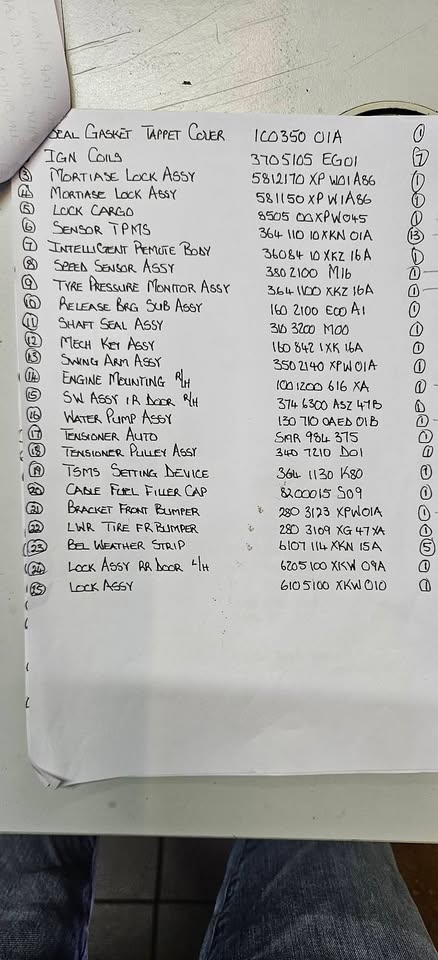 SEAL GASKET TAPPET COVER 1C0350 01A 1
IGN COILS 3705105 EG01 7
3 MORTIASE LOCK ASSY 5812170 XPW01A86 1
4 MORTIASE LOCK ASSY 581150 XPW1A86 1
5 LOCK CARGO 8505 00XPW045 1
6 SENSOR TPMS 364 110 10XKN 01A 13
7 INTELLIGENT REMUTE BODY 36084 10 XKZ 16A 1
8 SPEED SENSOR ASSY 380 2100 M16 1
9 TYRE PRESSURE MONITOR ASSY 364 1100 XKZ 16A 1
10 RELEASE BRG SUB ASSY 160 2100 E00 A1 1
11 SHAFT SEAL ASSY 310 3200 M00 1
12 MECH KEY ASSY 160 842 1XK 16A 1
13 SWING ARM ASSY 350 2140 XPW01A 1
14 ENGINE MOUNTING R/H 100 1200 616 XA 1
15 SW ASSY IR DOOR R/H 374 6300 ASZ 47B 1
16 WATER PUMP ASSY 130 710 0AED 01B 1
17 TENSIONER AUTO SMR 984 375 1
18 TENSIONER PULLEY ASSY 340 7210 D01 1
19 TSMS SETTING DEVICE 364 1130 K80 1
20 CABLE FUEL FILLER CAP 8200015 S09 1
21 BRACKET FRONT BUMPER 280 3123 XPW01A 1
22 LWR TIRE FR BUMPER 280 3109 XG 47XA 1
23 BEL WEATHER STRIP 6107 114 XKN 15A 5
24 LOCK ASSY RR DOOR L/H 6205 100 XKW 09A 1
25 LOCK ASSY 6105100 XKW 010 1